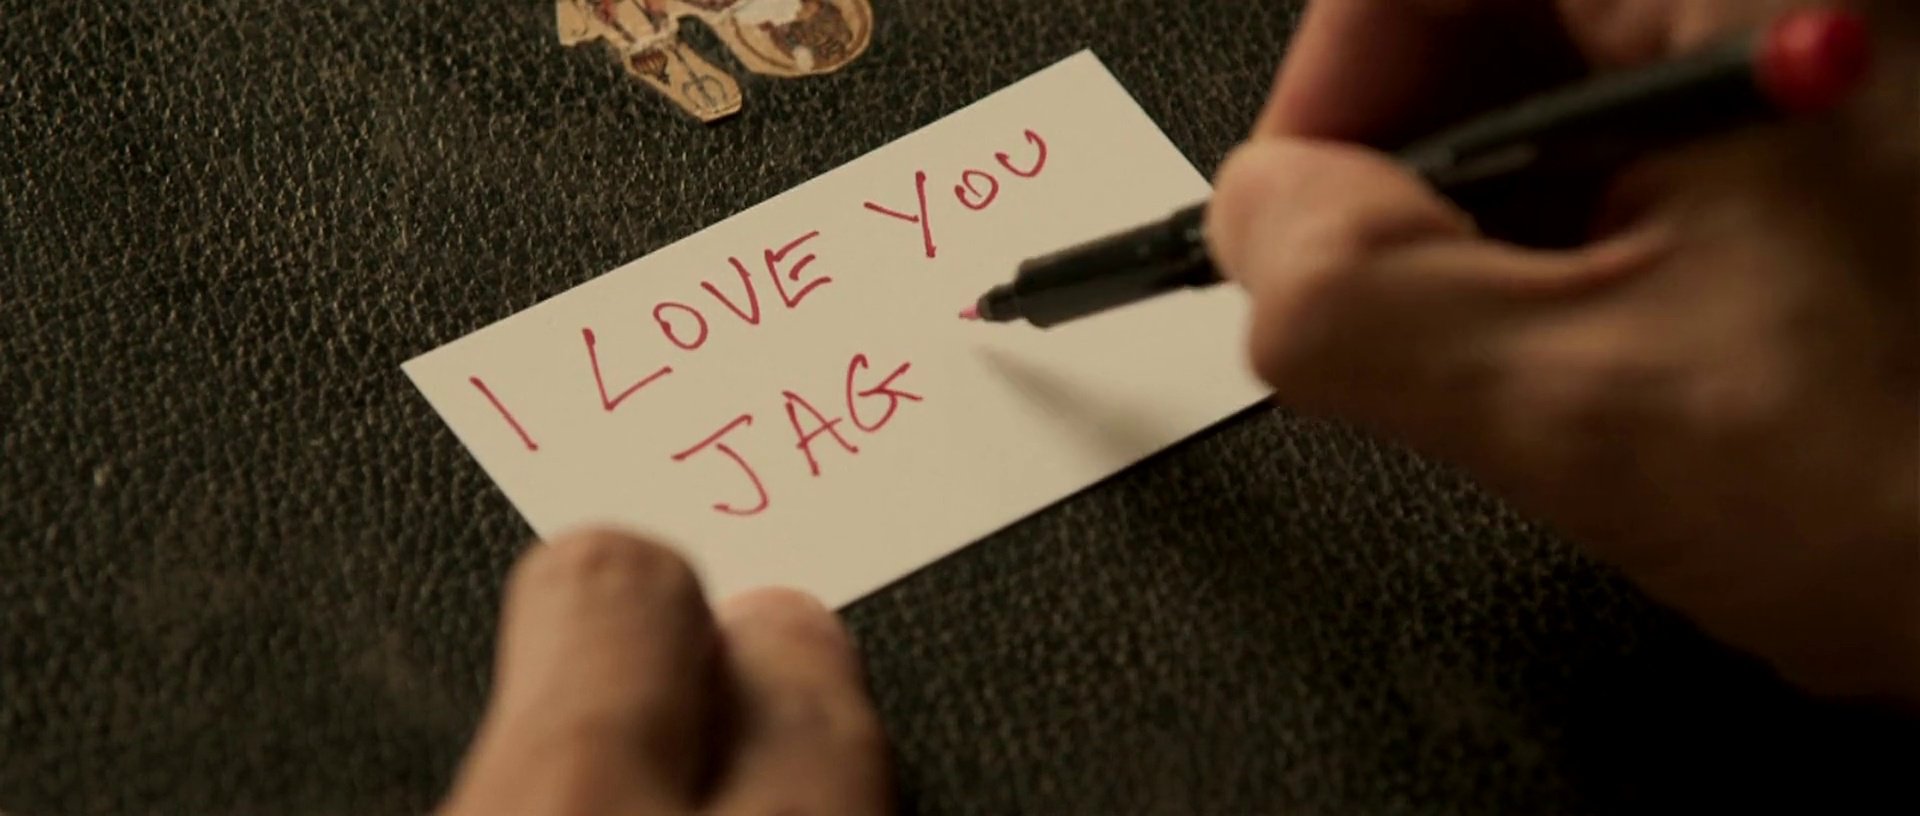 I LOVE YOU
JAG